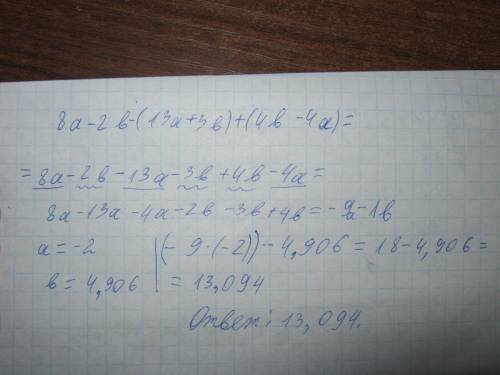 8a-2b-(13a+3b)+(4b-4a)=
=8a-2b-13a-3b+4b-4a=
8a-13a-4a-2b-3b+4b=-9a-1b
a=-2 (-9·(-2))-4,906=18-4,906=
b=4,906 =13,094
Ответ: 13,094.